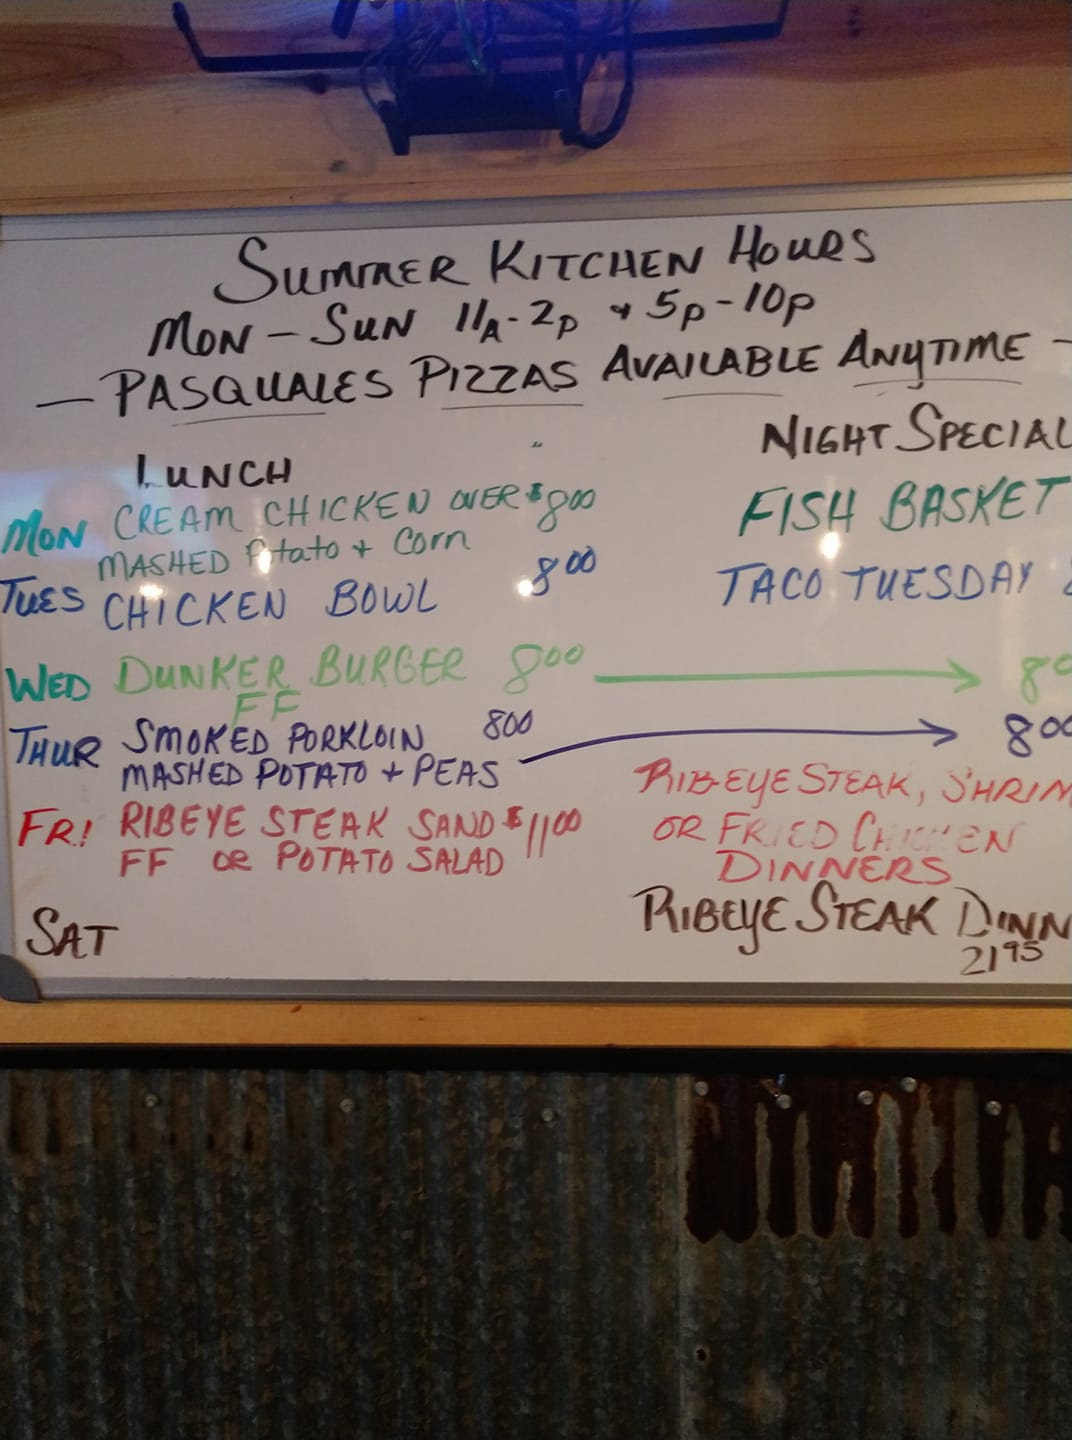 SUMMER KITCHEN HOURS
MON - SUN 11A - 2P & 5P - 10P
— PASQUALES PIZZAS AVAILABLE ANYTIME —
LUNCH
NIGHT SPECIAL
MON CREAM CHICKEN OVER $800
MASHED Potato + Corn
FISH BASKET
TUES CHICKEN BOWL 800
TACO TUESDAY
WED DUNKER BURGER 800 → 80
FF
THUR SMOKED PORKLOIN 800 → 800
MASHED POTATO + PEAS
FRI RIBEYE STEAK SAND $1100
FF OR POTATO SALAD
RIBEYE STEAK, SHRIM
OR FRIED CHICKEN
DINNERS
SAT
RIBEYE STEAK DINN
2195